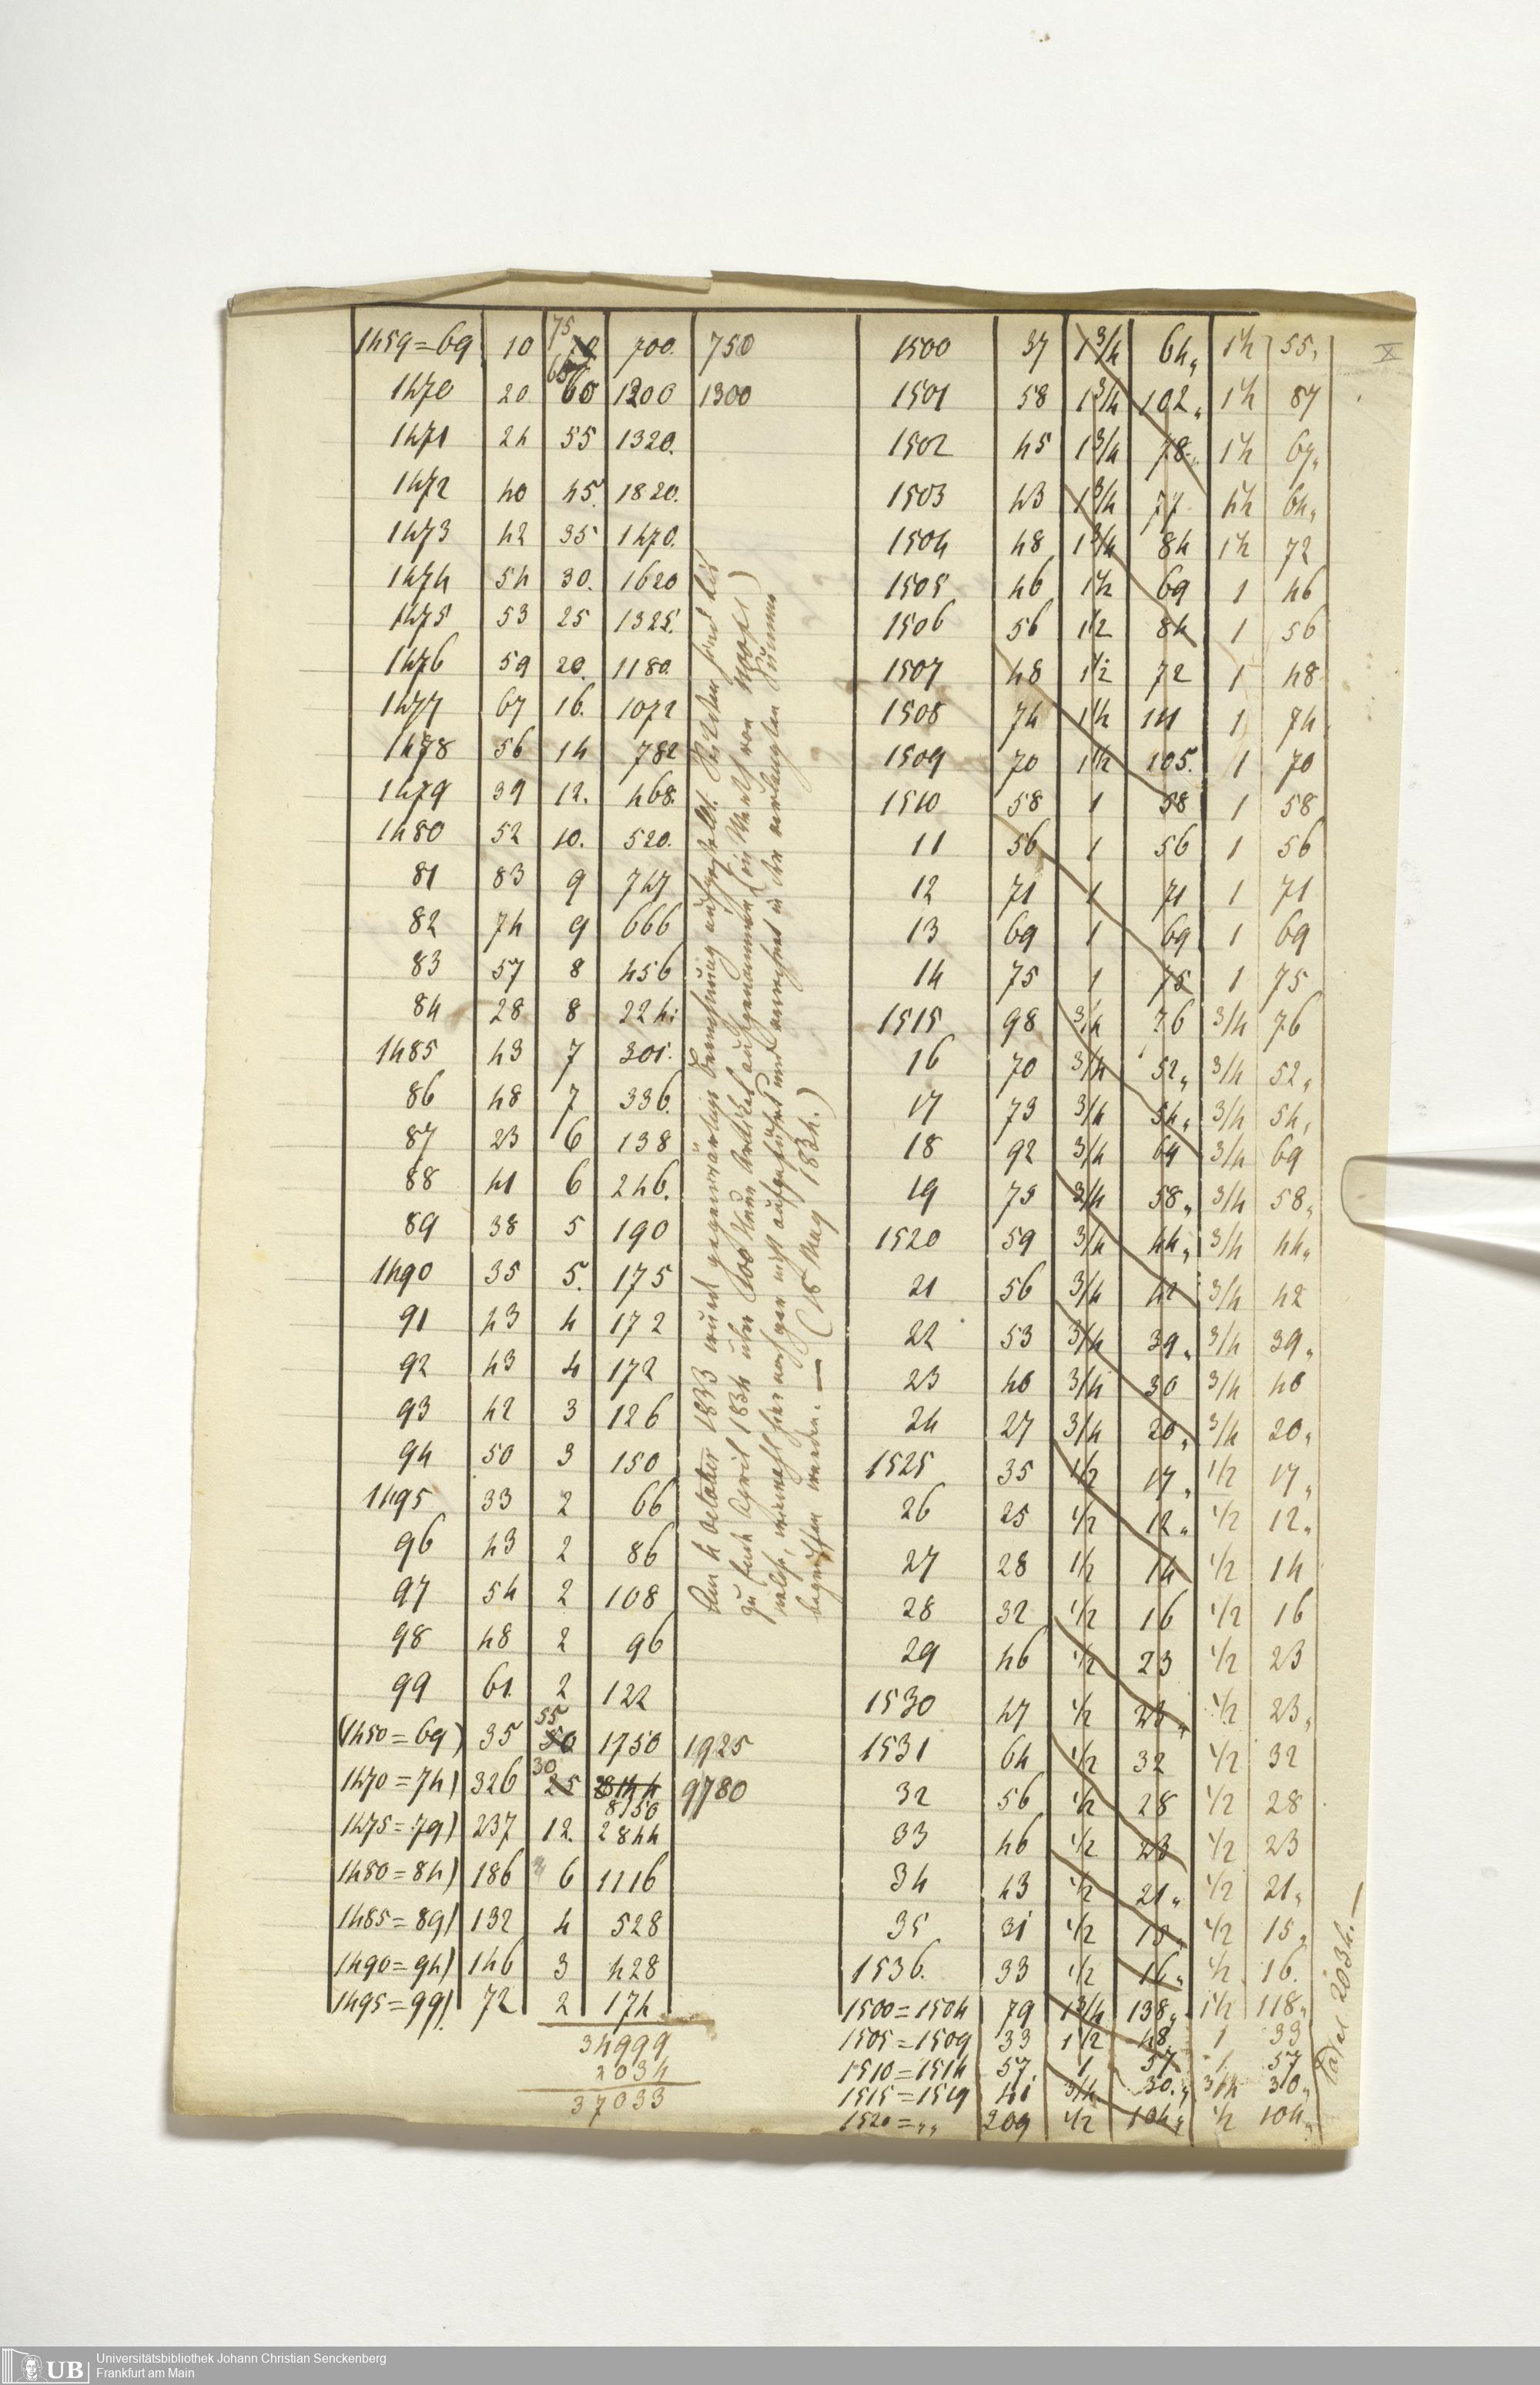 1459=69 10 75 70 700. 750
1470 20 65 60 1200 1300
1471 24 55 1320.
1472 40 45. 1820.
1473 42 35 1470.
1474 54 30. 1620
1475 53 25 1325.
1476 59 20. 1180.
1477 67 16. 1072
1478 56 14 782
1479 39 12. 468.
1480 52 10. 520.
81 83 9 747
82 74 9 666
83 57 8 456
84 28 8 224:
1485 43 7 301.
86 48 7 336.
87 23 6 138
88 41 6 246.
89 38 5 190
1490 35 5. 175
91 43 4 172
92 43 4 172
93 42 3 126
94 50 3 150
1495 33 2 66
96 43 2 86
97 54 2 108
98 48 2 96
99 61. 2 122
(1450=69) 35 55 50 1750 1925
1470=74) 326 30 25 8150 9780
1475=79) 237 12. 2844
1480=84) 186 6 1116
1485=89) 132 4 528
1490=94) 146 3 428
1495=99) 72 2 174
34999
2034
37033
Am 4 October 1833 wurde gegenwärtige Berechnung aufgestellt. Seitdem sind bis
zu Ende April 1834 über 600 neue Artikel aufgenommen (im Werth von
welche, wiewohl hier noch gar nicht aufgeführt und berechnet in der verlangten Summe
begriffen werden. — (15 May 1834.)
1500 37 1 3/4 64„ 1 1/2 55„
1501 58 1 3/4 102„ 1 1/2 87
1502 45 1 3/4 78„ 1 1/2 67„
1503 43 1 3/4 77 1 1/2 64„
1504 48 1 3/4 84 1 1/2 72
1505 46 1 1/2 69 1 46
1506 56 1 1/2 84 1 56
1507 48 1 1/2 72 1 48
1508 74 1 1/2 111 1 74
1509 70 1 1/2 105. 1 70
1510 58 1 58 1 58
11 56 1 56 1 56
12 71 1 71 1 71
13 69 1 69 1 69
14 75 1 75 1 75
1515 98 3/4 76 3/4 76
16 70 3/4 52„ 3/4 52„
17 73 3/4 54„ 3/4 54„
18 92 3/4 69 3/4 69
19 79 3/4 58„ 3/4 58„
1520 59 3/4 44„ 3/4 44„
21 56 3/4 42 3/4 42
22 53 3/4 39„ 3/4 39„
23 40 3/4 30 3/4 40
24 27 3/4 20„ 3/4 20„
1525 35 1/2 17„ 1/2 17„
26 25 1/2 12„ 1/2 12„
27 28 1/2 14 1/2 14
28 32 1/2 16 1/2 16
29 46 1/2 23 1/2 23
1530 47 1/2 23„ 1/2 23„
1531 64 1/2 32 1/2 32
32 56 1/2 28 1/2 28
33 46 1/2 23 1/2 23
34 43 1/2 21„ 1/2 21„
35 31 1/2 15„ 1/2 15„
1536. 33 1/2 16„ 1/2 16.
1500=1504 79 1 3/4 138„ 1 1/2 118„
1505=1509 33 1 1/2 48„ 1 33
1510=1514 57. 1 57 1 57
1515=1519 41 3/4 30„ 3/4 30„
1520=„„ 209 1/2 104„ 1/2 104„
Total 2034.—
X
UB
Universitätsbibliothek Johann Christian Senckenberg
Frankfurt am Main